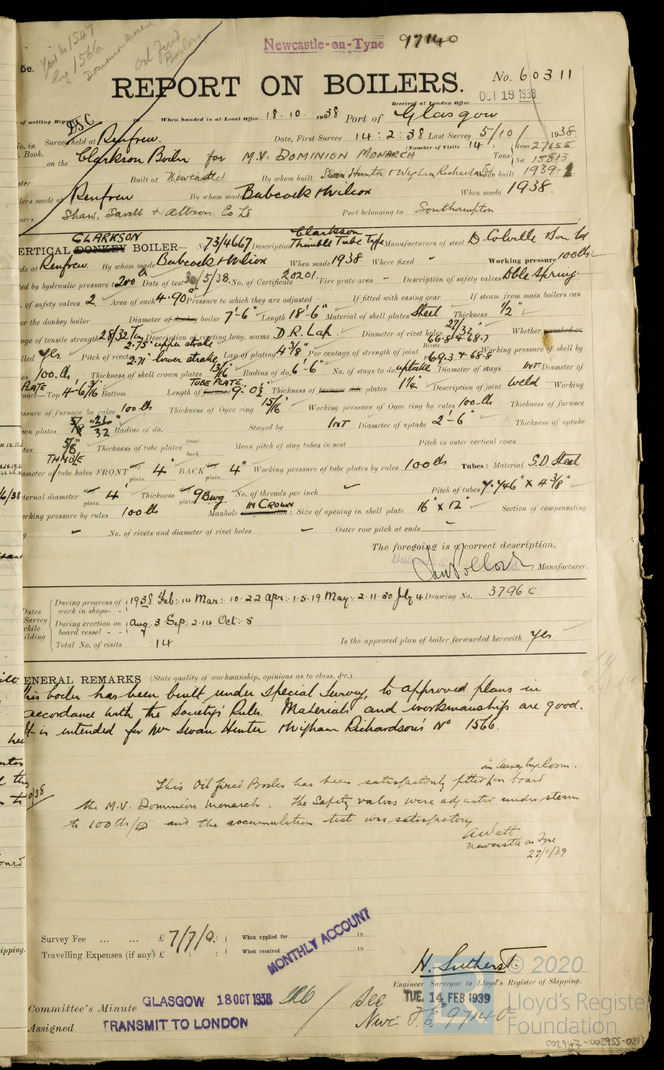 Yard No 1547
1566
Dominion Monarch
Oil fired Boilers
Newcastle-on-Tyne 97140
REPORT ON BOILERS.
No. 60311
Received at London Office
OCT 19 1938
of writing Rep
D.S.C.
When handed in at Local Office 18.10.1938 Port of Glasgow
No. in Survey held at Renfrew Date, First Survey 14:2:38 Last Survey 5/10/1938
Book. (Number of Visits 14)
on the Clarkson Boiler for M.V. DOMINION MONARCH Tons
Gross 27155
Net 15813
Built at Newcastle By whom built Swan Hunter & Wigham Richardson When built 1939.1
Renfrew By whom made Babcock & Wilcox When made 1938.
Shaw, Savill & Albion Co Ld Port belonging to Southampton
VERTICAL CLARKSON DONKEY BOILER No. 73/4667 Description Clarkson Thimble Tube Type Manufacturers of steel D. Colville & Son Ld
Made at Renfrew By whom made Babcock & Wilcox When made 1938 Where fixed - Working pressure 100 lbs
ed by hydraulic pressure to 200 lb Date of test 30/5/38 No. of Certificate 20201 Fire grate area - Description of safety valves Dble Spring
of safety valves 2 Area of each 4.90 Pressure to which they are adjusted If fitted with easing gear If steam from main boilers can
er the donkey boiler Diameter of donkey boiler 7'-6" Length 18'-6" Material of shell plates Steel Thickness 1/2"
ge of tensile strength 28/32 Tons Description of riveting long. seams D.R. Lap Diameter of rivet holes 27/32" Whether punched or
2.75" upper strake
yes Pitch of rivets 2.71" lower strake Lap of plating 4 3/8" Per centage of strength of joint Rivets 66.8 & 68.7 Plate 69.3 & 68.8 Working pressure of shell by
100 lb Thickness of shell crown plates 13/16" Radius of do. 6'-6" No. of stays to do. uptake Diameter of stays INT Diameter of
PLATE Top 4'-6 3/16" Bottom Length of TUBE PLATE 9'-0 1/2" Thickness of furnace plates 1 1/4" Description of joint Weld Working
pressure of furnace by rules 100 lbs Thickness of Ogee ring 15/16" Working pressure of Ogee ring by rules 100 lbs Thickness of furnace
wn plates 5/8" 26/32 Radius of do. Stayed by INT Diameter of uptake 2'-6" Thickness of uptake
ates 5/8" Thickness of tube plates front back Mean pitch of stay tubes in nest Pitch in outer vertical rows
THIMBLE
diameter of tube holes FRONT plain 4" BACK plain 4" Working pressure of tube plates by rules 100 lb Tubes: Material S.D Steel
ernal diameter plain 4" Thickness plain 9 Bwg No. of threads per inch - Pitch of tubes 7.746" x 4 3/8"
rking pressure by rules 100 lb Manhole IN CROWN: Size of opening in shell plate 16" x 12" Section of compensating
- No. of rivets and diameter of rivet holes - Outer row pitch at ends -
The foregoing is a correct description,
Manufacturer.
Dates of Survey while building
During progress of work in shops - - 1938 Feb: 14 Mar: 10.22 Apr: 1.5.19 May: 2.11.30 July 4 Drawing No. 3796 C
During erection on board vessel - - - Aug: 3 Sep: 2.14 Oct: 5
Total No. of visits 14 Is the approved plan of boiler forwarded herewith Yes
GENERAL REMARKS (State quality of workmanship, opinions as to class, &c.)
This boiler has been built under Special Survey, to approved plans in
accordance with the Society's Rules. Materials and workmanship are good.
It is intended for Mr Swan Hunter & Wigham Richardson's No 1566.
This Oil fired Boiler has been satisfactorily fitted on board in Auxy Eng. Room.
the M.V. Dominion Monarch. The Safety valves were adjusted under steam
to 100 lbs/sq" and the accumulation test was satisfactory
A Watt
Newcastle on Tyne
27/1/39
Survey Fee ... ... £ 7/7/0 : When applied for 19
Travelling Expenses (if any) £ : : When received 19
MONTHLY ACCOUNT
N. Sutherst.
Engineer Surveyor to Lloyd's Register of Shipping.
Committee's Minute GLASGOW 18 OCT 1938 See TUE. 14 FEB 1939
Assigned TRANSMIT TO LONDON Nwc. F.E. 97140
© 2020
Lloyd's Register
Foundation
002947-002955-0211